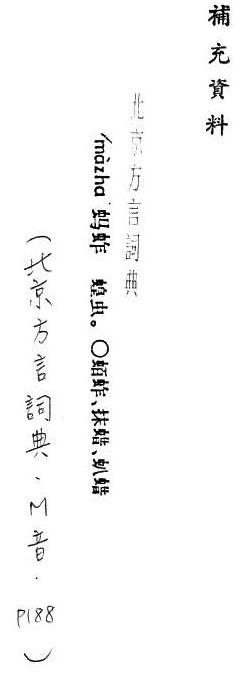 補充資料
北京方言詞典
màzha 蚂蚱 蝗虫。〇蛨蚱、抹蜡、虮蜡
(北京方言詞典．M音．P188)